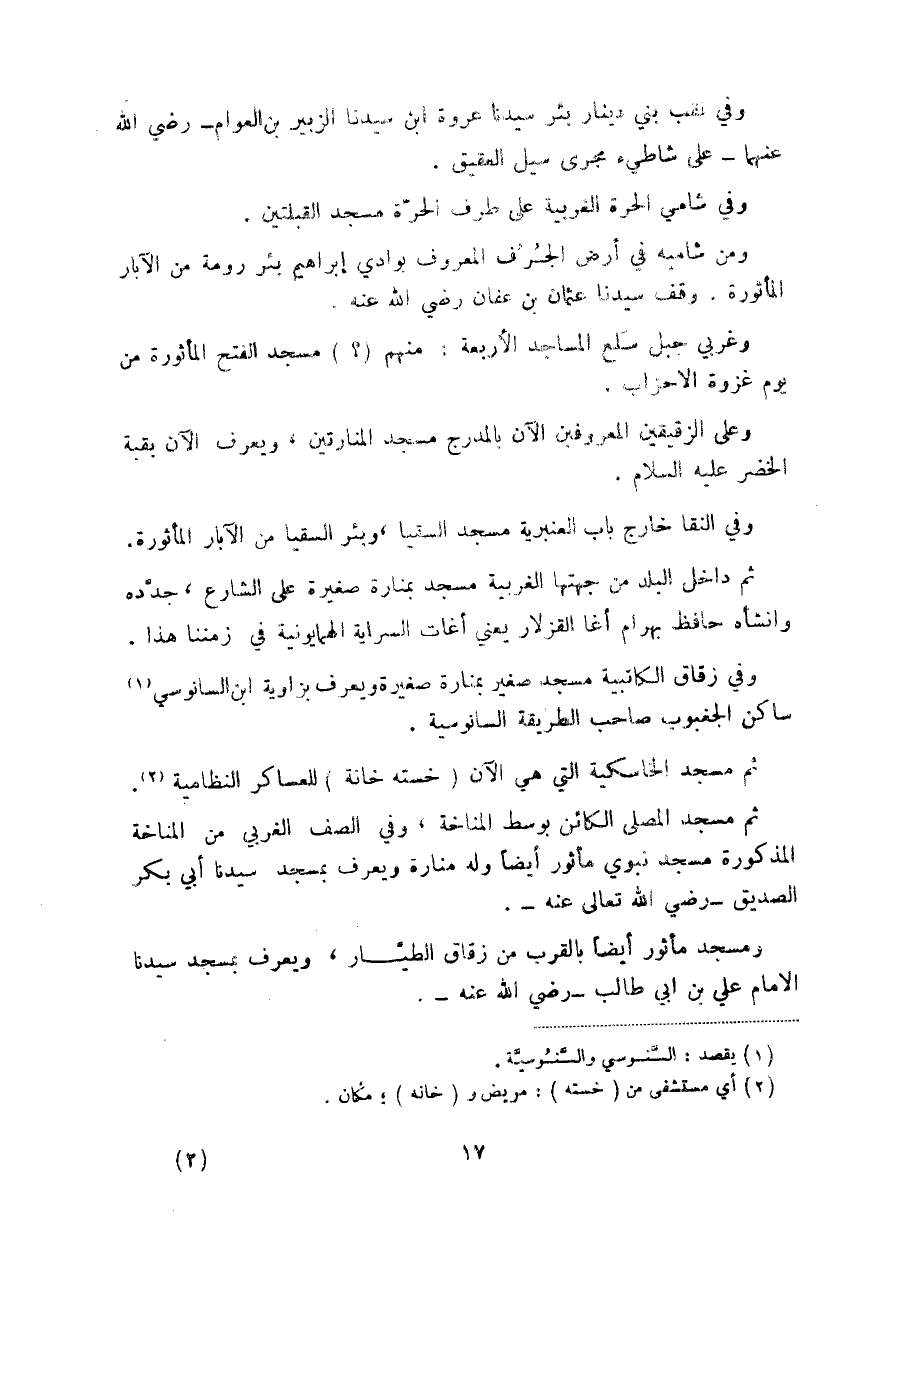 وفي نقب بني دينار بئر سيدنا عروة ابن سيدنا الزبير بن العوام – رضي الله
عنهما – على شاطىء مجرى سيل العقيق .
وفي شامي الحرة الغربية على طرف الحرّة مسجد القبلتين .
ومن شاميه في أرض الجُرُف المعروف بوادي إبراهيم بئر رومة من الآبار
المأثورة . وقف سيدنا عثمان بن عفان رضي الله عنه .
وغربي جبل سَلع المساجد الأربعة : منهم (؟) مسجد الفتح المأثورة من
يوم غزوة الاحزاب .
وعلى الزقيقين المعروفين الآن بالمدرج مسجد المنارتين ، ويعرف الآن بقبة
الخضر عليه السلام .
وفي النقا خارج باب العنبرية مسجد السقيا ، وبئر السقيا من الآبار المأثورة.
ثم داخل البلد من جهتها الغربية مسجد بمنارة صغيرة على الشارع ، جدَّده
وانشأه حافظ بهرام أغا القزلار يعني أغات السراية الهمايونية في زمننا هذا .
وفي زقاق الكاتبية مسجد صغير بمنارة صغيرة ويعرف بزاوية ابن السانوسي (١)
ساكن الجغبوب صاحب الطريقة السانوسية .
ثم مسجد الخاسكية التي هي الآن ( خسته خانة ) للعساكر النظامية (٢).
ثم مسجد المصلى الكائن بوسط المناخة ، وفي الصف الغربي من المناخة
المذكورة مسجد نبوي مأثور أيضاً وله منارة ويعرف بمسجد سيدنا أبي بكر
الصديق – رضي الله تعالى عنه – .
ومسجد مأثور أيضاً بالقرب من زقاق الطيَّـــار ، ويعرف بمسجد سيدنا
الامام علي بن ابي طالب – رضي الله عنه – .
(١) يقصد : السَّنـوسي والسَّنُوسيَّة .
(٢) أي مستشفى من ( خسته ) : مريض و ( خانه ) ؛ مكان .
١٧
(٢)